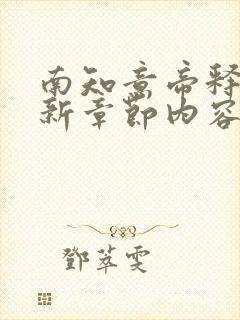 南知意帝释
新章节内容
邓萃雯